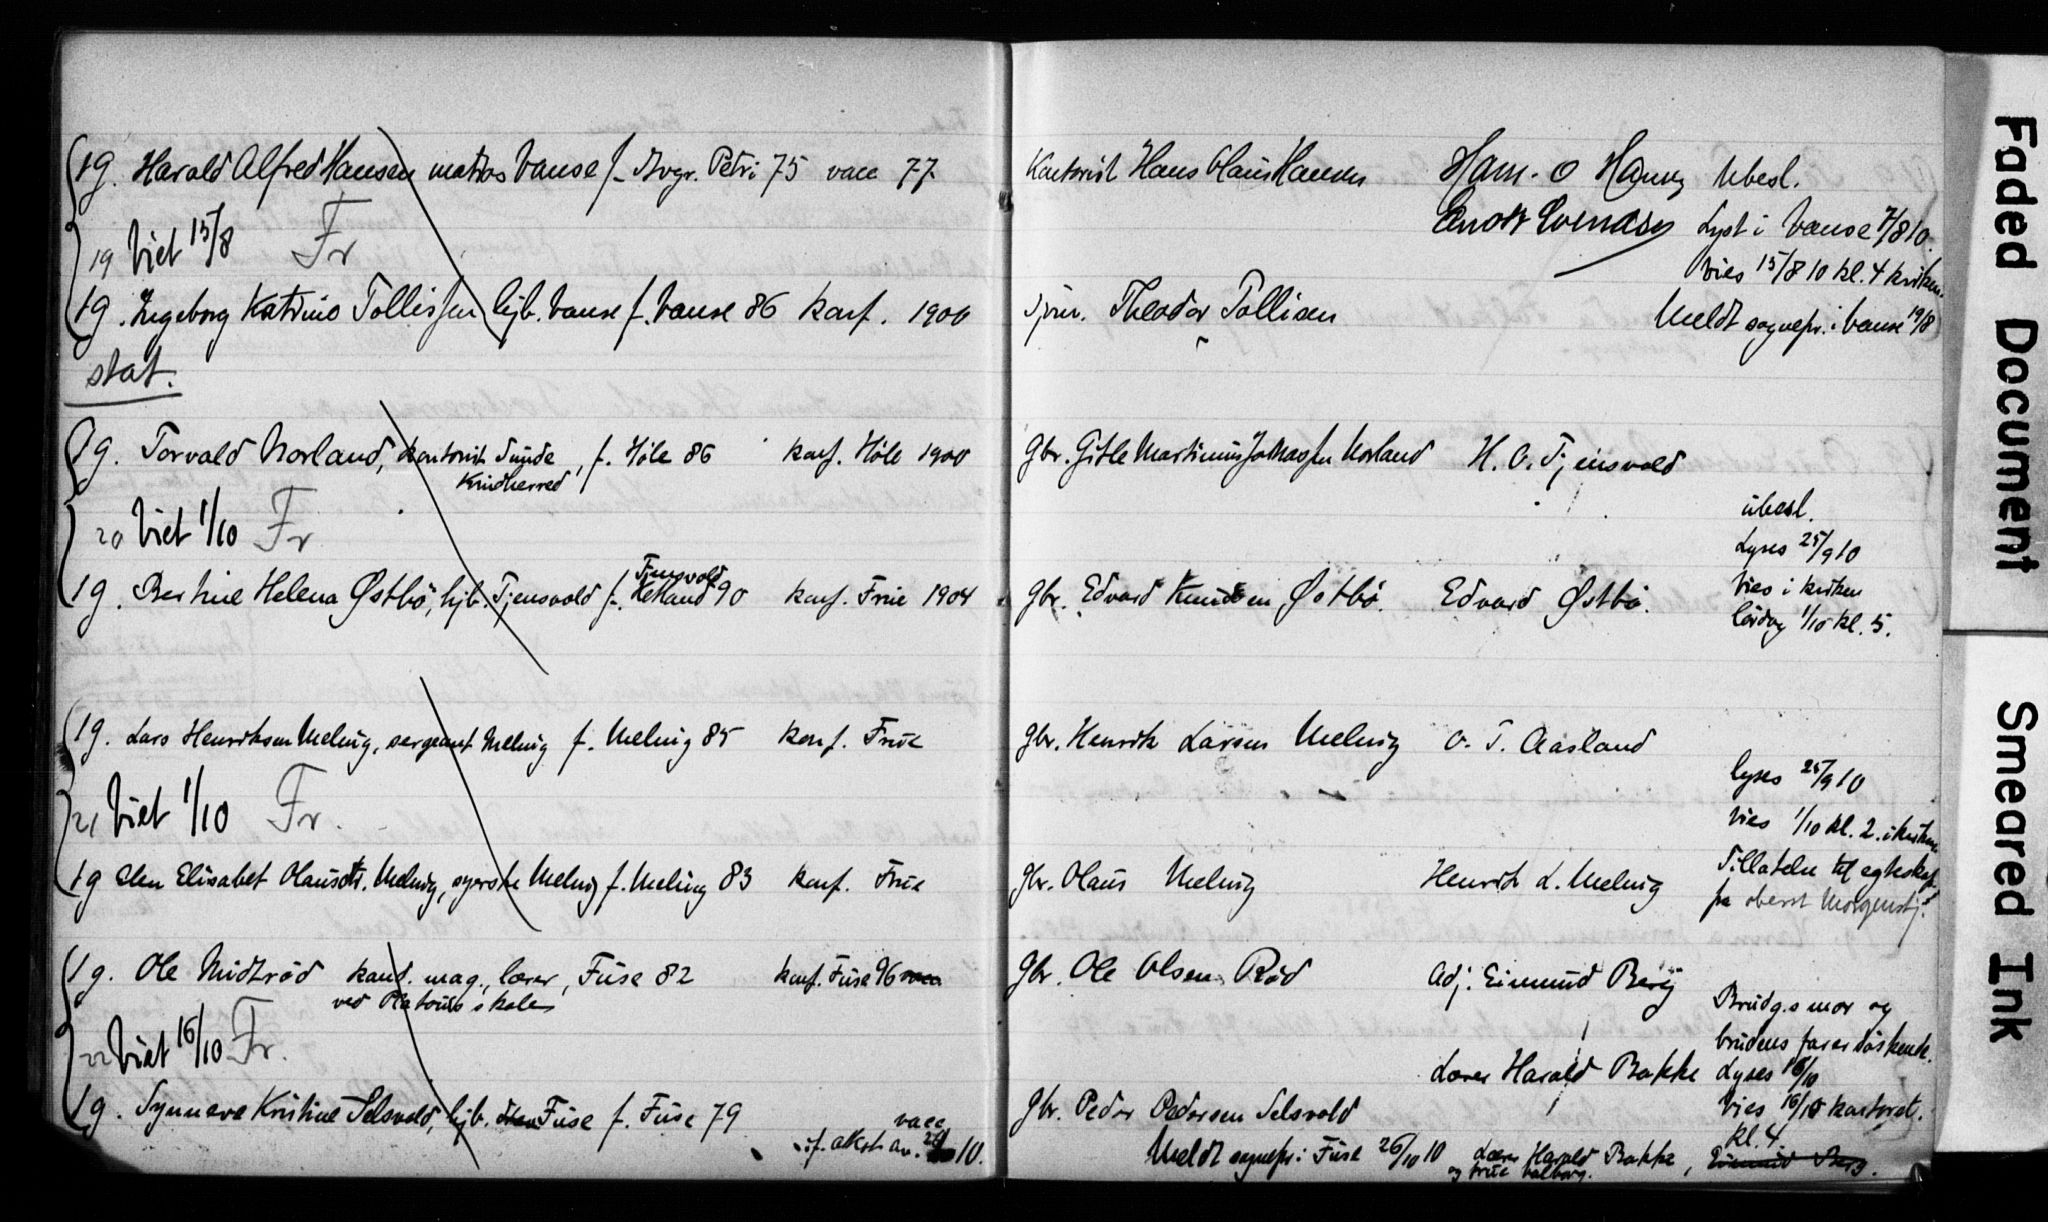 1g. Harald Alfred Hansen matros Vanse f. Stvgr. Petri 75 vacc 77.
19 Viet 15/8 Fr
1g. Ingeborg Katrine Tollisen hjb. Vanse f. Vanse 86 konf. 1900
stat.
1g. Torvald Norland, kontorist Sunde, f. Höle 86 konf. Höle 1900
20 Viet 1/10 Fr
1g. Bertine Helena Østbö, hjb. Tjensvold f. Ketland 90 konf. Frue 1904
Tjensvold
1g. Lars Henriksen Meling, sergeant Meling f. Meling 85 konf. Frue
21 Viet 1/10 Fr.
1g Elen Elisabet Olausdtr. Meling, syerske Meling f. Meling 83 konf. Frue
1g. Ole Midtröd kand. mag., lærer, Fuse 82 konf. Fuse 96
ved skole
22 Viet 16/10 Fr.
1g. Synneve Kristine Selsvold, hjb. Fuse f. Fuse 79
vacc
if. attest av. 10.
Kontorist Hans Olaus Hansen Hans. O Hansen Ubesl.
Enok Svendsen Lyst i Vanse 7/8 10.
Vies 15/8 10 kl. 4 kirken.
Theodor Tollisen Meldt sognepr. i Vanse 19/8
gbr. Gitle Martinius Johnassen Norland H. O. Tjensvold
ubesl.
Lyses 25/9 10
gbr. Edvard Knudsen Østbö. Edvard Østbö. Vies i kirken
lördag 1/10 kl. 5.
gbr. Henrik Larsen Meling O. T. Aasland
lyses 25/9 10
Vies 1/10 kl. 2. i kirken
gbr. Olaus Meling Henrik L. Meling Tillatelse til egteskap
fra oberst Morgenstj.
gbr. Ole Olsen Röd Adj. Eimund Berg
Brudg.s mor og
brudens far er söskende.
Lærer Harald Bakke Lyses 16/10
gbr. Peder Pedersen Selsvold Vies 16/10 kontoret.
kl. 4
Meldt sognepr. i Fuse 26/10 10 Lærer Harald Bakke, Eimund Berg.
og frue Valborg.
Faded Document
Smeared Ink